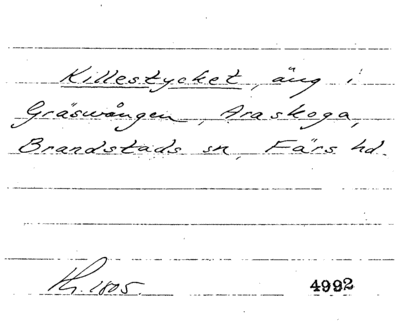 Killestycket, äng i
Gräswången, Araskoga,
Brandstads sn, Färs hd.
1805. 4992